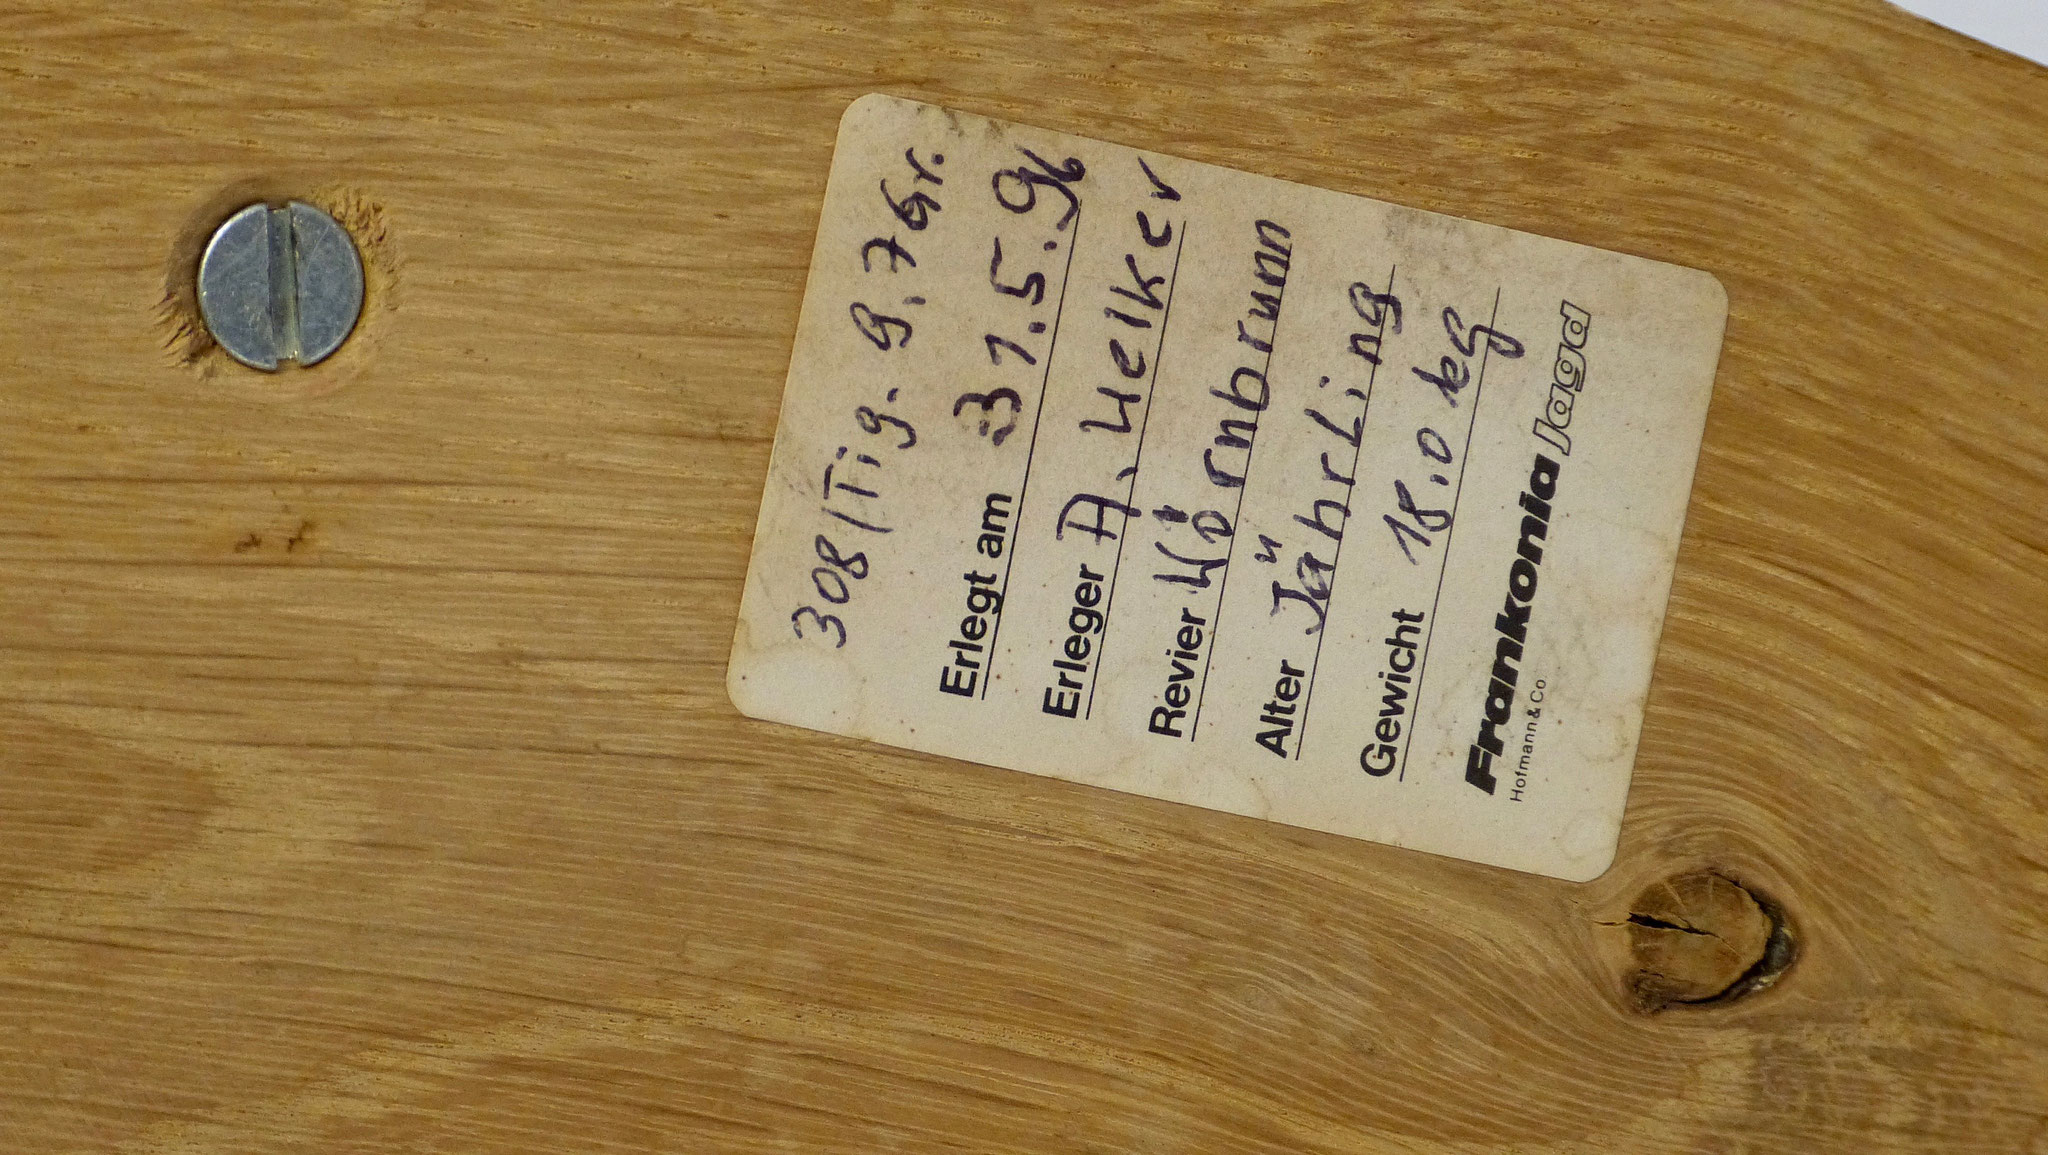 308/Tig. 9.7 Gr.
Erlegt am 31.5.96
Erleger A. Welker
Revier Wörnbrunn
Alter Jährling
Gewicht 18.0 kg
Frankonia Jagd
Hofmann & Co